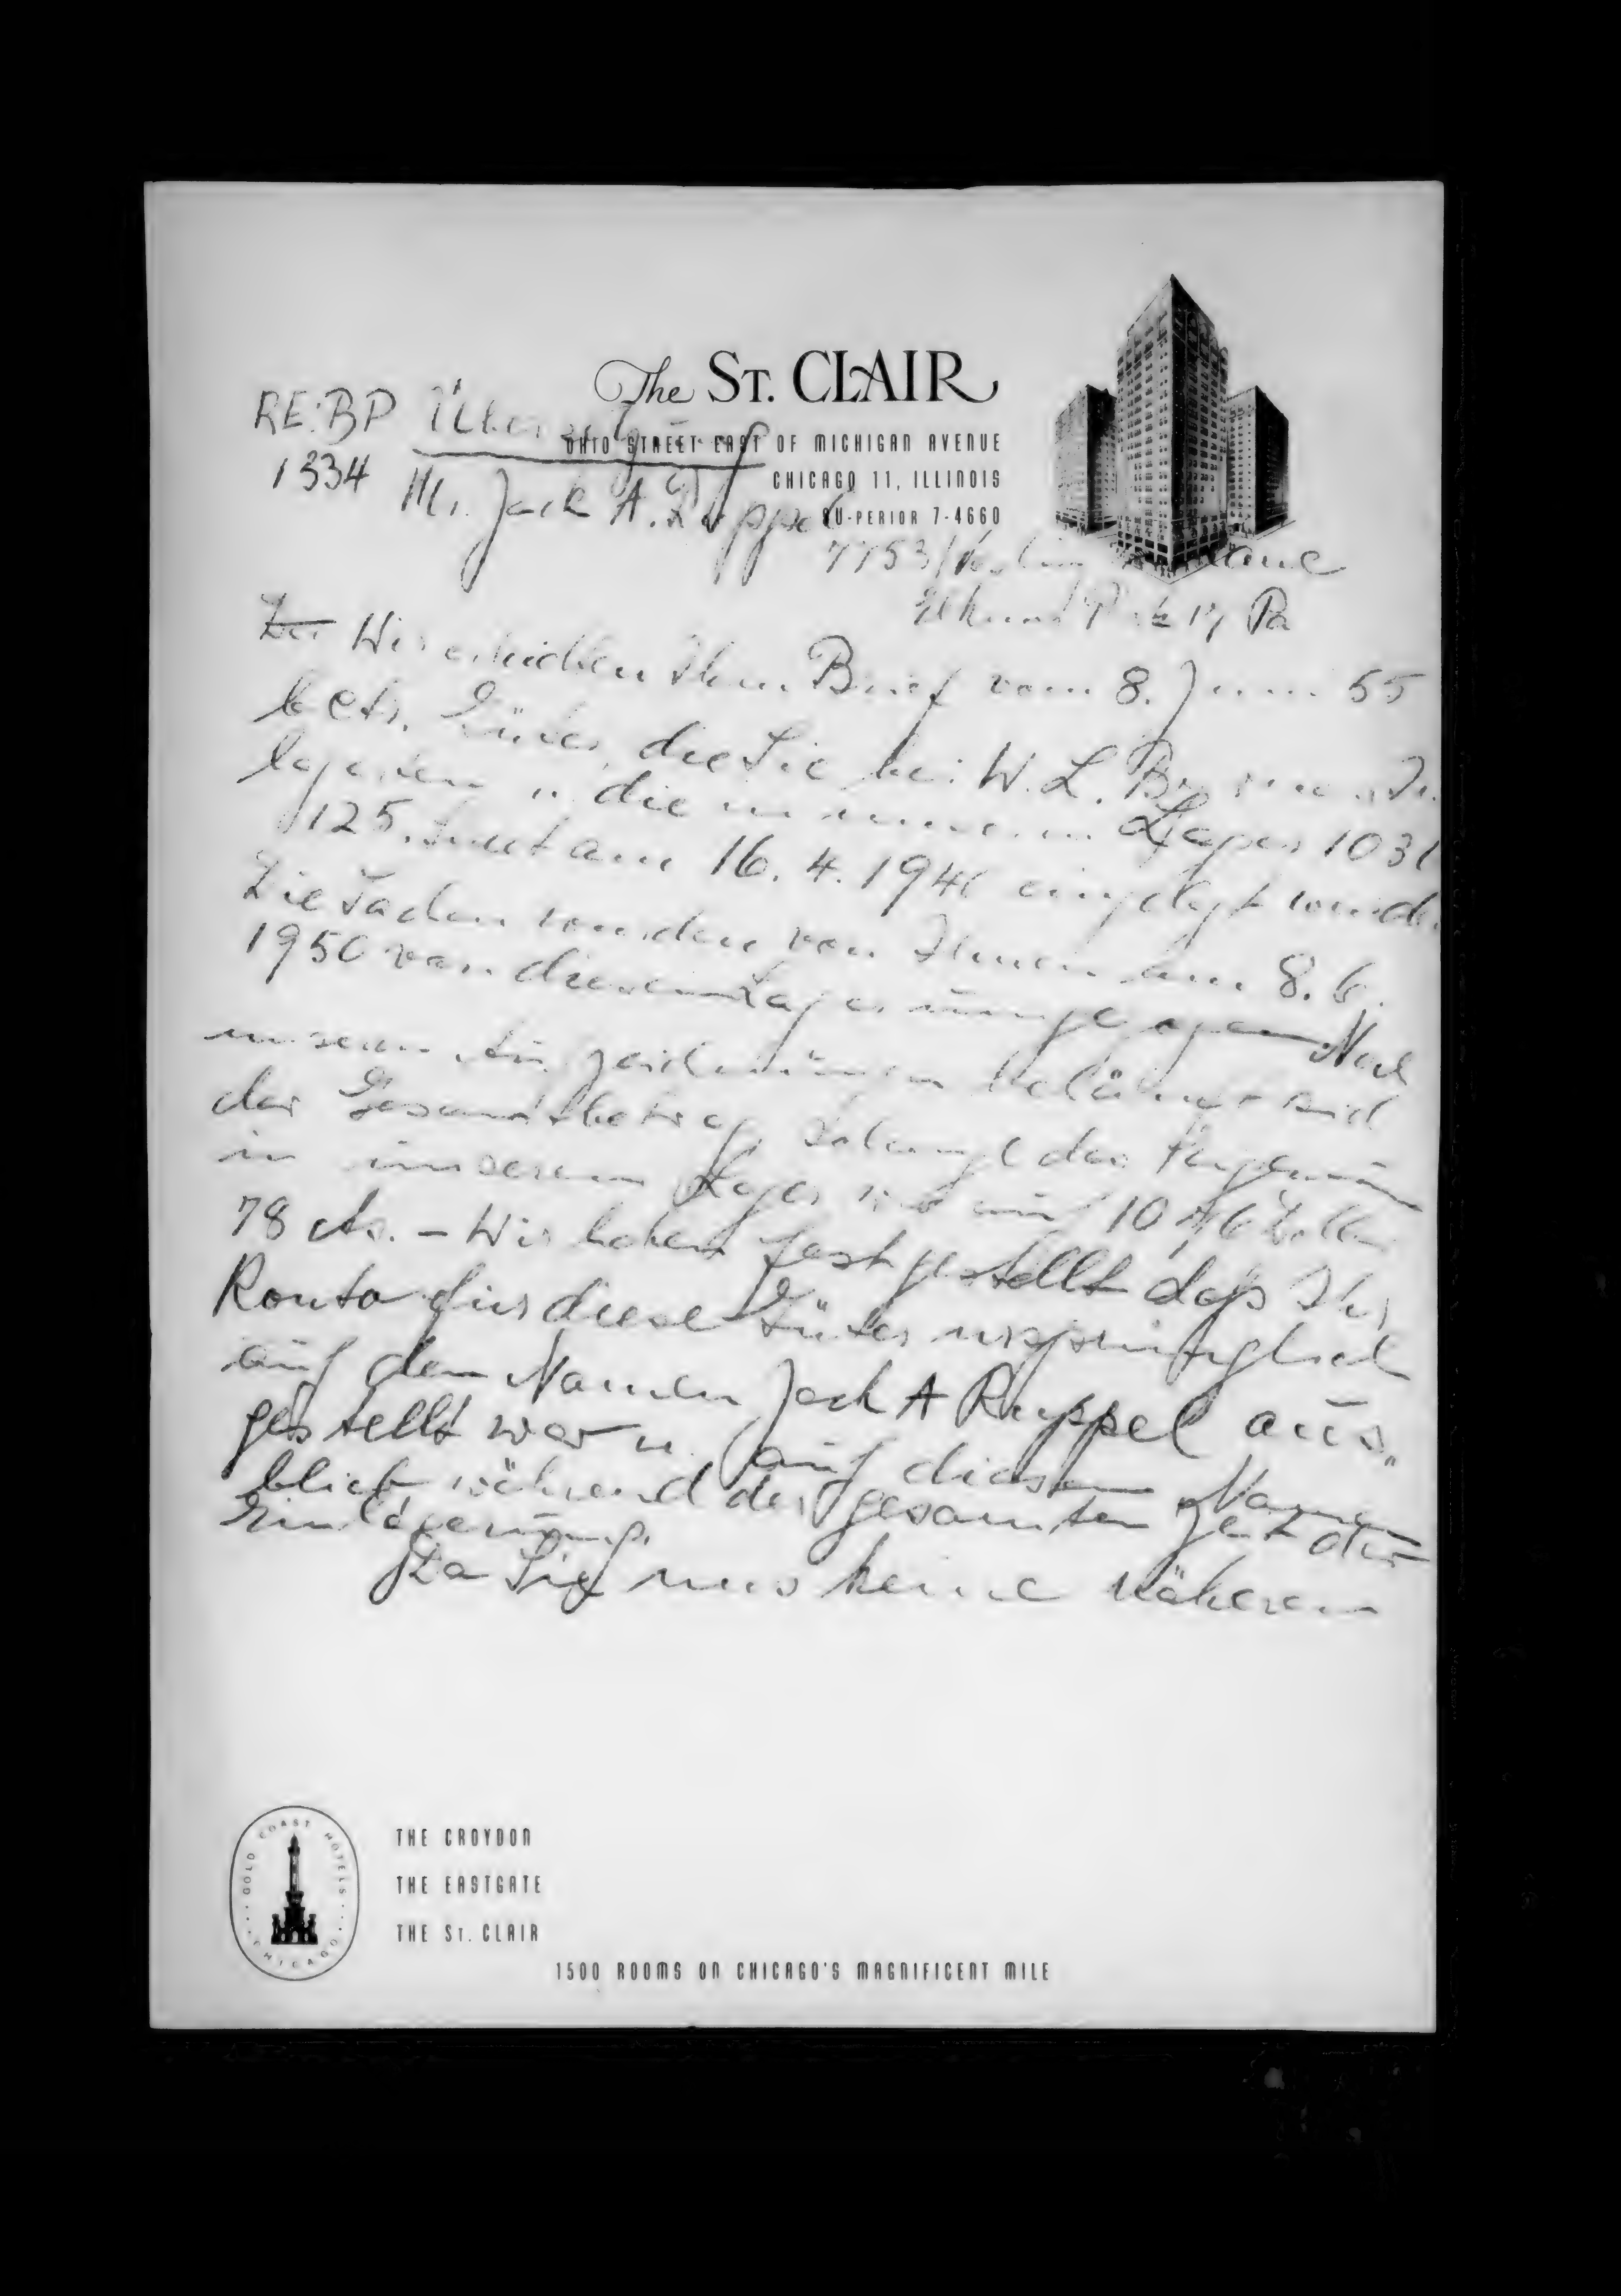 The ST. CLAIR
OHIO STREET EAST OF MICHIGAN AVENUE
CHICAGO 11, ILLINOIS
SU-PERIOR 7-4660
RE: BP Übersetzung
1334 Mr. Jack A. Ruppel
7753 Lane
Elkins Park 17 Pa
Wir erhielten Ihren Brief vom 8. Juni 55
betr. Güter, die Sie bei W. L.
lagerten u. die in unserem Lager 1031
125. Street am 16. 4. 1946 eingelegt wurde
Die Sachen wurden von Ihnen am 8. 6.
1950 von diesem Lager Nach
unseren Aufzeichnungen beläuft sich
der Gesamtbetrag, solange das
in unserem Lager war auf 1046 Dollar
78 cts. - Wir haben festgestellt daß Ihr
Konto für diese Güter ursprünglich
auf den Namen Jack A Ruppel aus-
gestellt war u. auf diesem Namen
blieb während der gesamten Zeit der
Einlagerung.
Da Sie uns keine näheren
GOLD COAST HOTELS
CHICAGO
THE CROYDON
THE EASTGATE
THE ST. CLAIR
1500 ROOMS ON CHICAGO'S MAGNIFICENT MILE